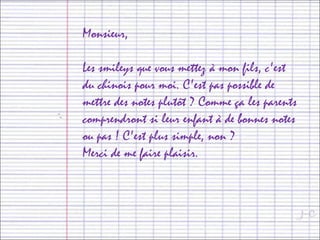 Monsieur,
Les smileys que vous mettez à mon fils, c'est
du chinois pour moi. C'est pas possible de
mettre des notes plutôt ? Comme ça les parents
comprendront si leur enfant à de bonnes notes
ou pas ! C'est plus simple, non ?
Merci de me faire plaisir.